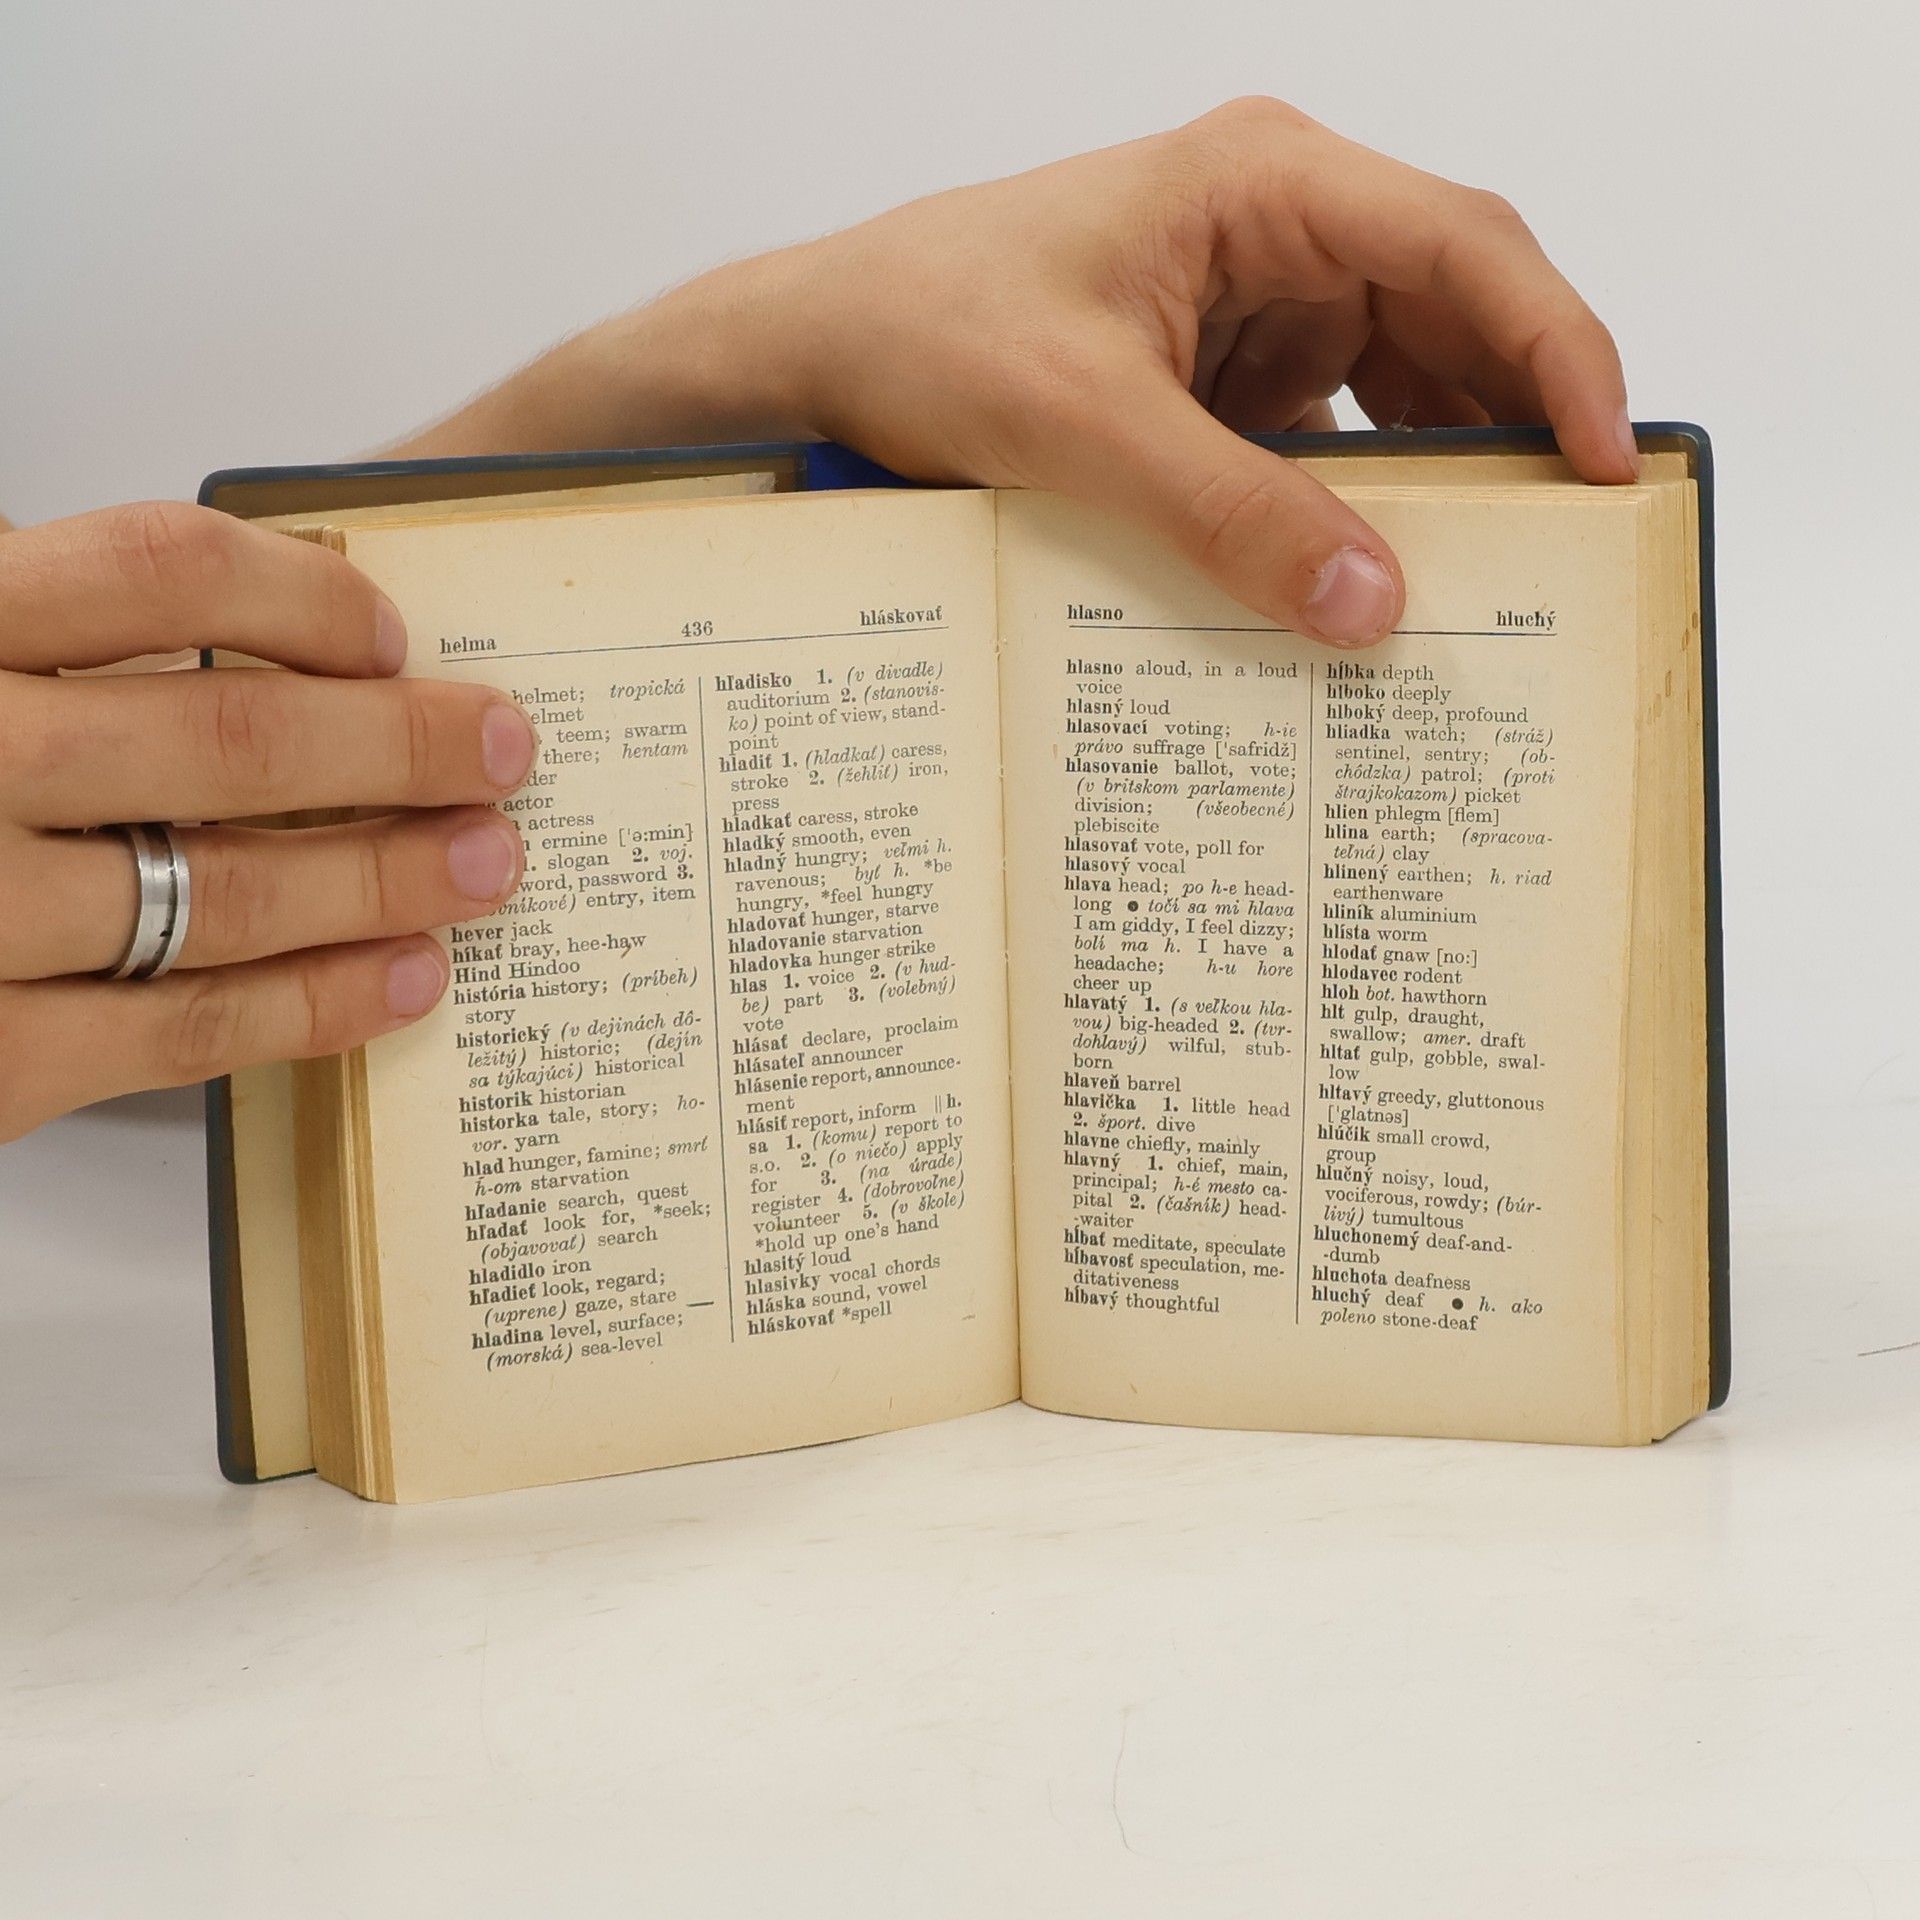 helma 436 hláskovať
helmet; tropická
elmet
teem; swarm
there; hentam
actor
actress
ermine [ˈə:min]
1. slogan 2. voj.
word, password 3.
entry, item
hever jack
híkať bray, hee-haw
Hind Hindoo
história history; (príbeh)
story
historický (v dejinách dô-
ležitý) historic; (dejín
sa týkajúci) historical
historik historian
historka tale, story; ho-
vor. yarn
hlad hunger, famine; smrť
h-om starvation
hľadanie search, quest
hľadať look for, *seek;
(objavovať) search
hladidlo iron
hľadieť look, regard;
(uprene) gaze, stare
hladina level, surface;
(morská) sea-level
hľadisko 1. (v divadle)
auditorium 2. (stanovis-
ko) point of view, stand-
point
hladiť 1. (hladkať) caress,
stroke 2. (žehliť) iron,
press
hladkať caress, stroke
hladký smooth, even
hladný hungry; veľmi h.
ravenous; byť h. *be
hungry, *feel hungry
hladovať hunger, starve
hladovanie starvation
hladovka hunger strike
hlas 1. voice 2. (v hud-
be) part 3. (volebný)
vote
hlásať declare, proclaim
hlásateľ announcer
hlásenie report, announce-
ment
hlásiť report, inform || h.
sa 1. (komu) report to
s.o. 2. (o niečo) apply
for 3. (na úrade)
register 4. (dobrovoľne)
volunteer 5. (v škole)
*hold up one's hand
hlasitý loud
hlasivky vocal chords
hláska sound, vowel
hláskovať *spell
hlasno hluchý
hlasno aloud, in a loud
voice
hlasný loud
hlasovací voting; h-ie
právo suffrage [ˈsafridž]
hlasovanie ballot, vote;
(v britskom parlamente)
division; (všeobecné)
plebiscite
hlasovať vote, poll for
hlasový vocal
hlava head; po h-e head-
long ● točí sa mi hlava
I am giddy, I feel dizzy;
bolí ma h. I have a
headache; h-u hore
cheer up
hlavatý 1. (s veľkou hla-
vou) big-headed 2. (tvr-
dohlavý) wilful, stub-
born
hlaveň barrel
hlavička 1. little head
2. šport. dive
hlavne chiefly, mainly
hlavný 1. chief, main,
principal; h-é mesto ca-
pital 2. (čašník) head-
-waiter
hĺbať meditate, speculate
hĺbavosť speculation, me-
ditativeness
hĺbavý thoughtful
hĺbka depth
hlboko deeply
hlboký deep, profound
hliadka watch; (stráž)
sentinel, sentry; (ob-
chôdzka) patrol; (proti
štrajkokazom) picket
hlien phlegm [flem]
hlina earth; (spracova-
teľná) clay
hlinený earthen; h. riad
earthenware
hliník aluminium
hlísta worm
hlodať gnaw [no:]
hlodavec rodent
hloh bot. hawthorn
hlt gulp, draught,
swallow; amer. draft
hltať gulp, gobble, swal-
low
hltavý greedy, gluttonous
[ˈglatnəs]
hlúčik small crowd,
group
hlučný noisy, loud,
vociferous, rowdy; (búr-
livý) tumultous
hluchonemý deaf-and-
-dumb
hluchota deafness
hluchý deaf ● h. ako
poleno stone-deaf